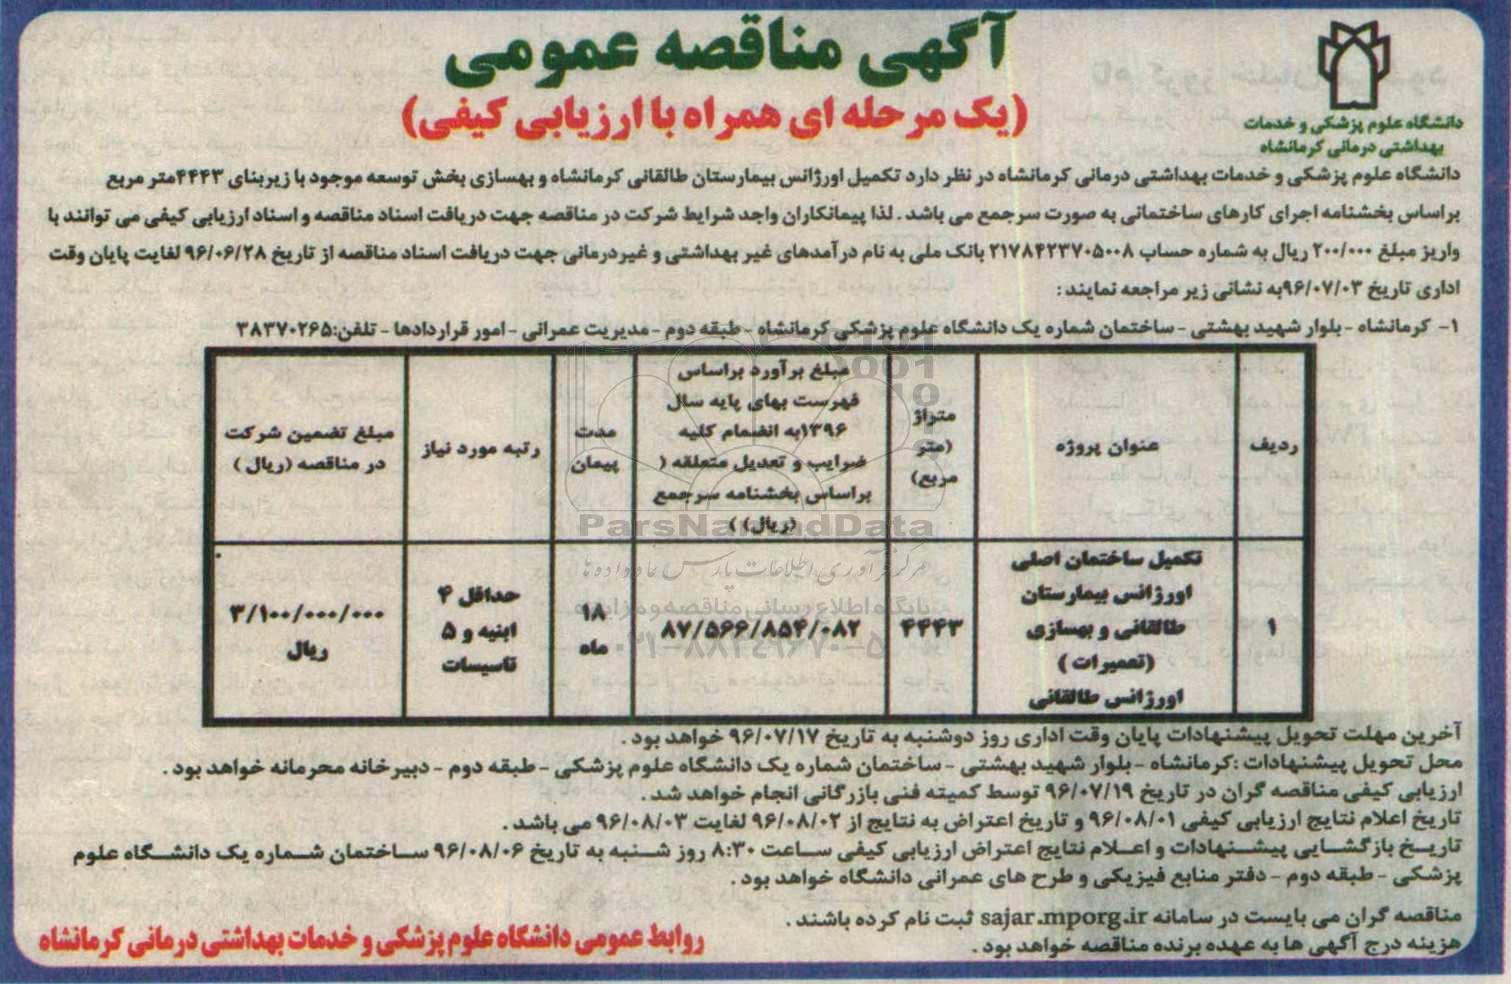 آگهی مناقصه عمومی
(یک مرحله ای همراه با ارزیابی کیفی)
دانشگاه علوم پزشکی و خدمات
بهداشتی درمانی کرمانشاه
دانشگاه علوم پزشکی و خدمات بهداشتی درمانی کرمانشاه در نظر دارد تکمیل اورژانس بیمارستان طالقانی کرمانشاه و بهسازی بخش توسعه موجود با زیربنای ۴۴۴۳متر مربع
براساس بخشنامه اجرای کارهای ساختمانی به صورت سرجمع می باشد. لذا پیمانکاران واجد شرایط شرکت در مناقصه جهت دریافت اسناد مناقصه و اسناد ارزیابی کیفی می توانند با
واریز مبلغ ۲۰۰/۰۰۰ ریال به شماره حساب ۲۱۷۸۴۲۳۷۰۵۰۰۸ بانک ملی به نام درآمدهای غیر بهداشتی و غیردرمانی جهت دریافت اسناد مناقصه از تاریخ ۹۶/۰۶/۲۸ لغایت پایان وقت
اداری تاریخ ۹۶/۰۷/۰۳به نشانی زیر مراجعه نمایند:
۱- کرمانشاه - بلوار شهید بهشتی - ساختمان شماره یک دانشگاه علوم پزشکی کرمانشاه - طبقه دوم - مدیریت عمرانی - امور قراردادها - تلفن:۳۸۳۷۰۲۶۵
ردیف
عنوان پروژه
متراژ
(متر
مربع)
مبلغ برآورد براساس
فهرست بهای پایه سال
۱۳۹۶به انضمام کلیه
ضرایب و تعدیل متعلقه (
براساس بخشنامه سرجمع
(ریال) )
مدت
پیمان
رتبه مورد نیاز
مبلغ تضمین شرکت
در مناقصه (ریال)
۱
تکمیل ساختمان اصلی
اورژانس بیمارستان
طالقانی و بهسازی
(تعمیرات)
اورژانس طالقانی
۴۴۴۳
۸۷/۵۶۶/۸۵۴/۰۸۲
۱۸
ماه
حداقل ۴
ابنیه و ۵
تاسیسات
۳/۱۰۰/۰۰۰/۰۰۰
ریال
ParsNamadData
مرکز فرآوری اطلاعات پارس نماد داده ها
پایگاه اطلاع رسانی مناقصه و مزایده
۰۲۱-۸۸۳۴۹۶۷۰-۵
آخرین مهلت تحویل پیشنهادات پایان وقت اداری روز دوشنبه به تاریخ ۹۶/۰۷/۱۷ خواهد بود.
محل تحویل پیشنهادات :کرمانشاه - بلوار شهید بهشتی - ساختمان شماره یک دانشگاه علوم پزشکی - طبقه دوم - دبیرخانه محرمانه خواهد بود.
ارزیابی کیفی مناقصه گران در تاریخ ۹۶/۰۷/۱۹ توسط کمیته فنی بازرگانی انجام خواهد شد.
تاریخ اعلام نتایج ارزیابی کیفی ۹۶/۰۸/۰۱ و تاریخ اعتراض به نتایج از ۹۶/۰۸/۰۲ لغایت ۹۶/۰۸/۰۳ می باشد.
تاریخ بازگشایی پیشنهادات و اعلام نتایج اعتراض ارزیابی کیفی ساعت ۸:۳۰ روز شنبه به تاریخ ۹۶/۰۸/۰۶ ساختمان شماره یک دانشگاه علوم
پزشکی - طبقه دوم - دفتر منابع فیزیکی و طرح های عمرانی دانشگاه خواهد بود.
مناقصه گران می بایست در سامانه sajar.mporg.ir ثبت نام کرده باشند.
هزینه درج آگهی ها به عهده برنده مناقصه خواهد بود.
روابط عمومی دانشگاه علوم پزشکی و خدمات بهداشتی درمانی کرمانشاه